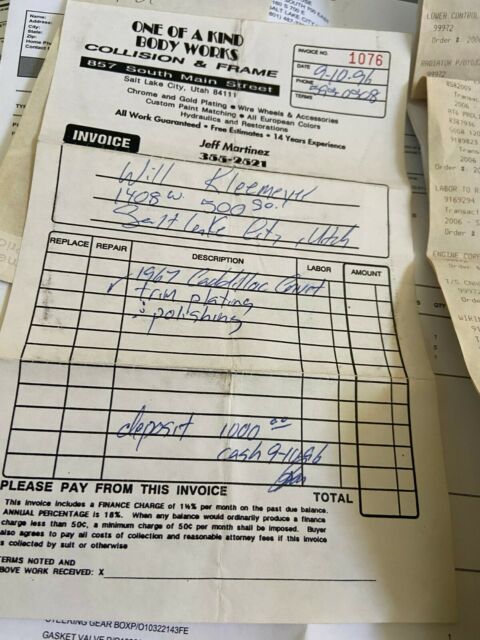 ONE OF A KIND
BODY WORKS
COLLISION & FRAME
857 South Main Street
Salt Lake City, Utah 84111
Chrome and Gold Plating • Wire Wheels & Accessories
Custom Paint Matching • All European Colors
Hydraulics and Restorations
All Work Guaranteed • Free Estimates • 14 Years Experience
Jeff Martinez
355-2521
INVOICE NO. 1076
DATE 9-10-96
PHONE
TERMS
INVOICE
Will Kleemeyer
1408 W. 500 So.
Salt Lake City, Utah
REPLACE REPAIR DESCRIPTION LABOR AMOUNT
1967 Caddillac Court
trim plating
polishing
deposit 1000 00
cash 9-10-96
PLEASE PAY FROM THIS INVOICE TOTAL
This invoice includes a FINANCE CHARGE of 1½% per month on the past due balance.
ANNUAL PERCENTAGE IS 18%. When any balance would ordinarily produce a finance
charge less than 50C, a minimum charge of 50C per month shall be imposed. Buyer
also agrees to pay all costs of collection and reasonable attorney fees if this invoice
is collected by suit or otherwise
TERMS NOTED AND
ABOVE WORK RECEIVED: X
STEERING GEAR BOXP/O10322143FE
LOWER CONTROL
99972
Order #: 200
RADIATOR P/O103
99972
Order # 2006
LABOR TO R
9169294
Transact
2006 - S
Order #
ENGINE COMP
WIRIN